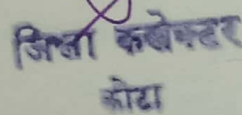 जिला कलेक्टर
कोटा